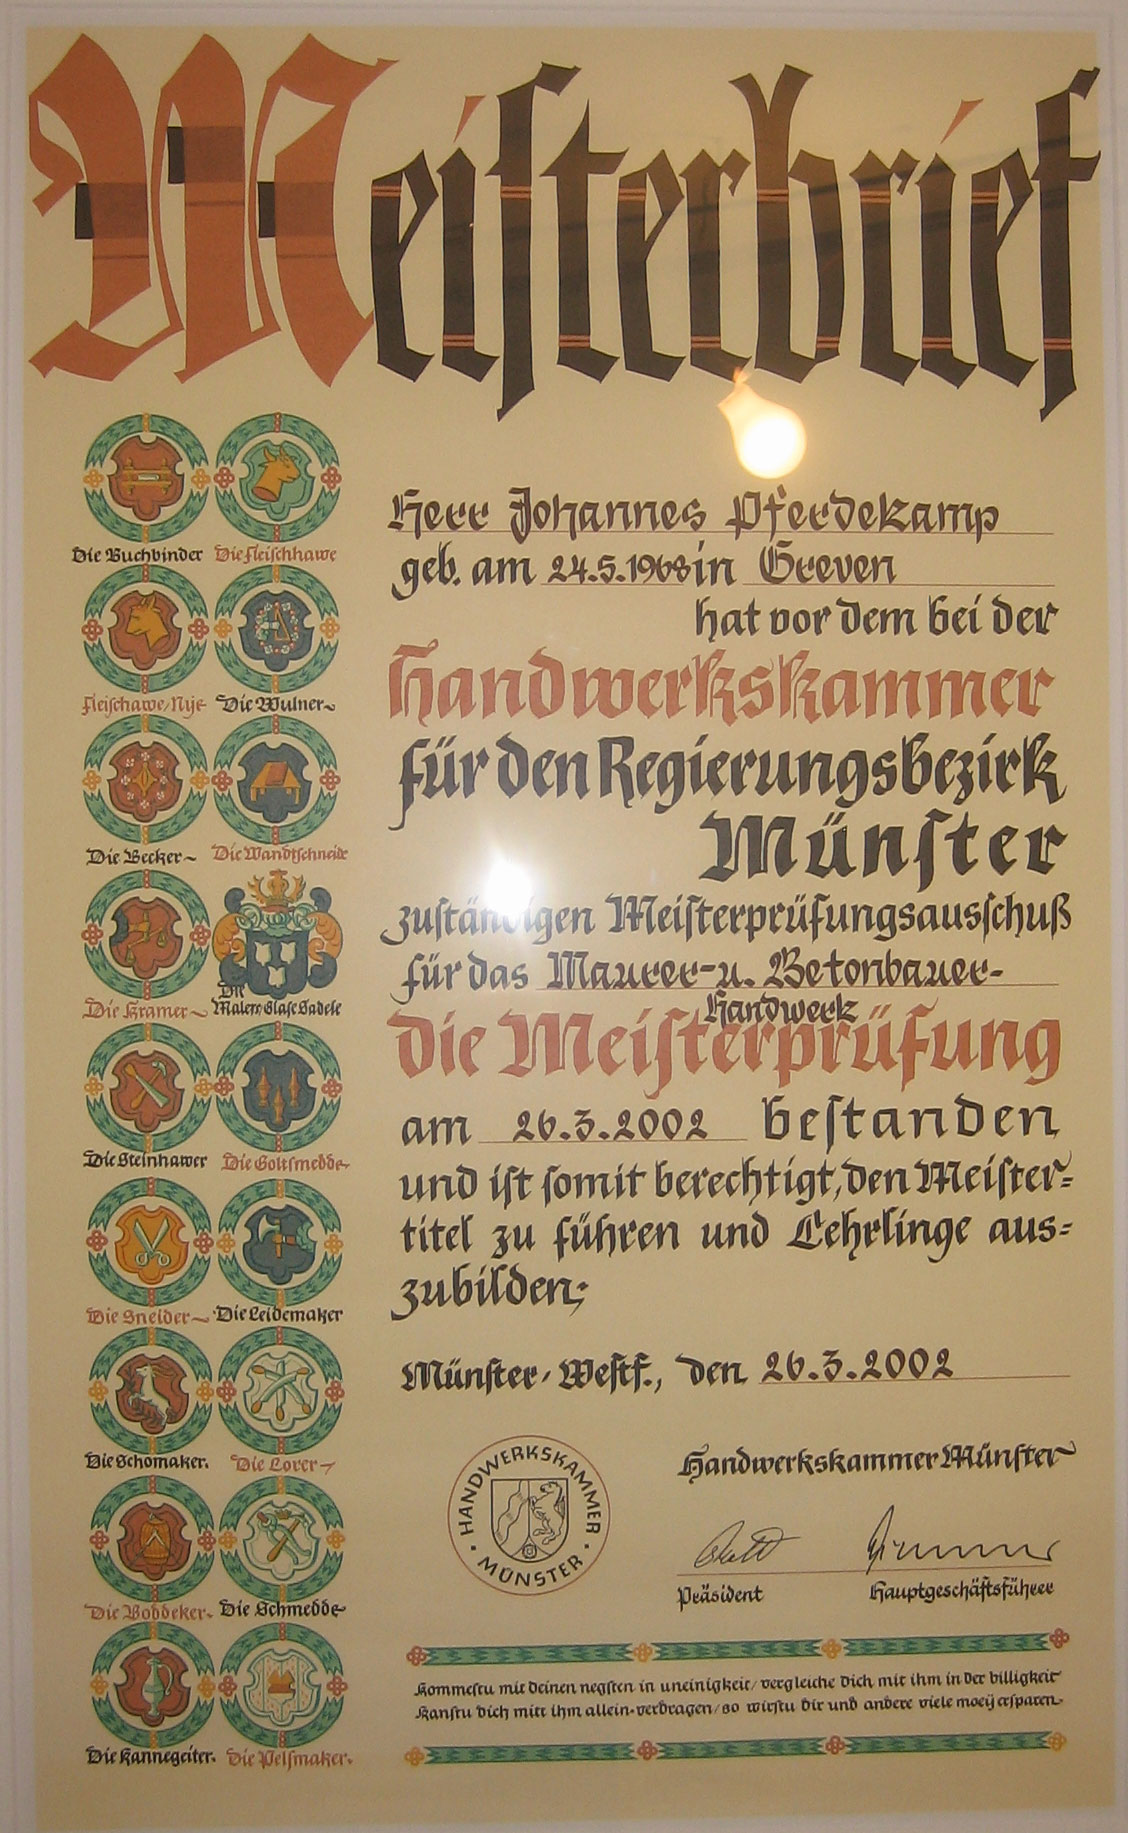 Meisterbrief
Die Buchbinder Die Fleischhawe
Fleischawe/Nije Die Wulner~
Die Becker~ Die Wandtschneider
Die Kramer~ Die Maler/Glase Sadele
Die Steinhawer Die Goltsmedde~
Die Sneider~ Die Leidemaker
Die Schomaker. Die Lorer~
Die Boddeker. Die Schmedde~
Die Kannegeiter. Die Pelsmaker.
Herr Johannes Pferdekamp
geb. am 24.5.1968 in Greven
hat vor dem bei der
Handwerkskammer
für den Regierungsbezirk
Münster
zuständigen Meisterprüfungsausschuß
für das Maurer- u. Betonbauer-
Handwerk
die Meisterprüfung
am 26.3.2002 bestanden
und ist somit berechtigt, den Meister=
titel zu führen und Lehrlinge aus=
zubilden;
Münster-Westf., den 26.3.2002
HANDWERKSKAMMER
· MÜNSTER ·
Handwerkskammer Münster
Präsident Hauptgeschäftsführer
Kommestu mit deinen negsten in uneinigkeit/vergleiche dich mit ihm in der billigkeit
kanstu dich mitt ihm allein verdragen/so wirstu dir und andere viele moeij ersparen~